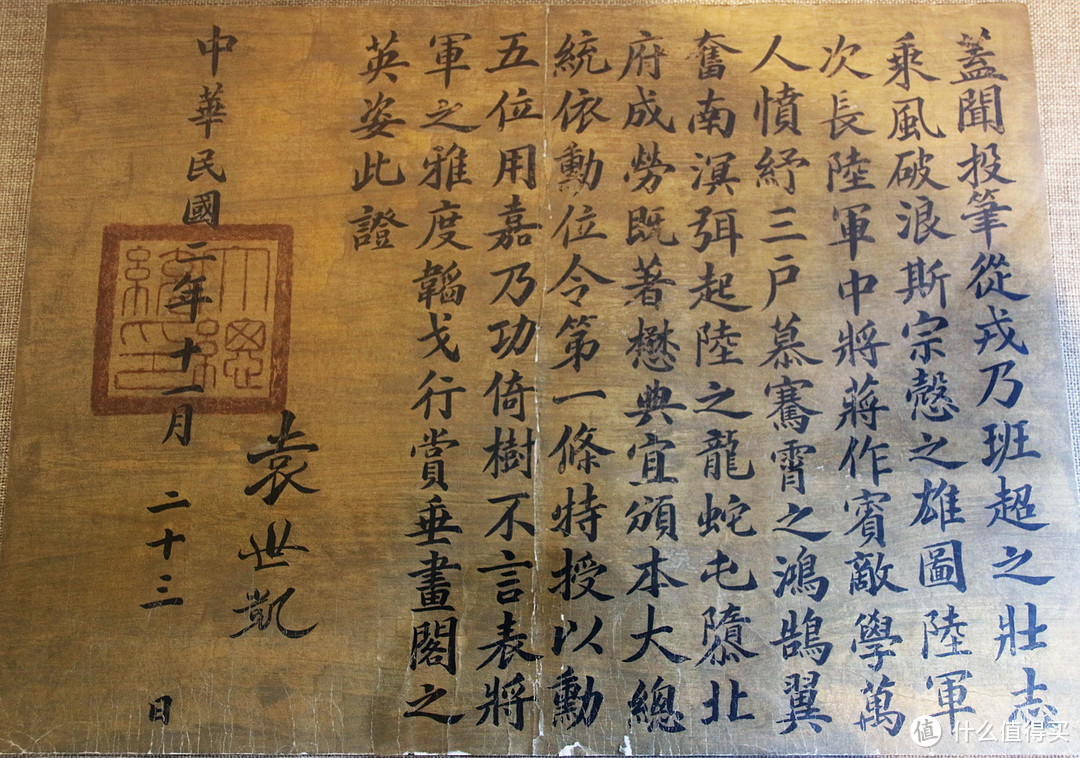 蓋聞投筆從戎乃班超之壯志
乘風破浪斯宗愨之雄圖陸軍
次長陸軍中將蔣作賓敵學萬
人憤紓三戶慕騫霄之鴻鵠翼
奮南溟弭起陸之龍蛇屯隳北
府成勞既著懋典宜頒本大總
統依勳位令第一條特授以勳
五位用嘉乃功倚樹不言表將
軍之雅度韜戈行賞垂畫閣之
英姿此證
袁世凱
中華民國二年十一月二十三日
大總統印
值 什么值得买